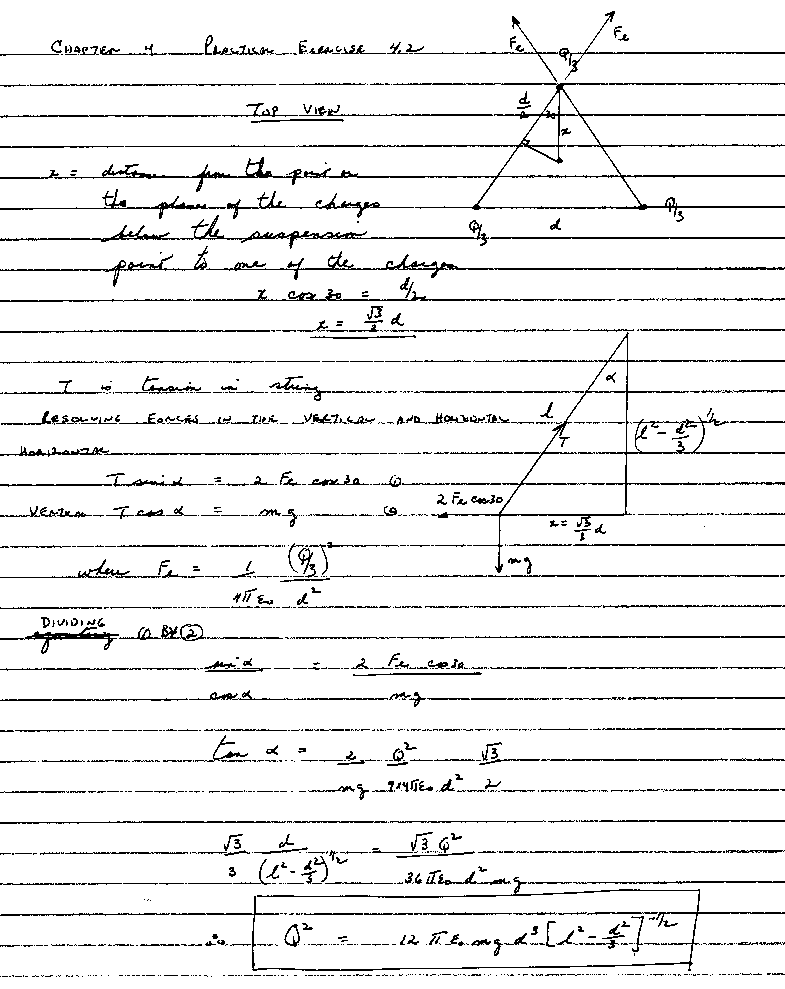 CHAPTER 4 PRACTICAL EXERCISE 4.2
Fe Q/3 Fe
TOP VIEW
d/2 30 x
x = distance from the point in
the plane of the charges
below the suspension
point to one of the charges
Q/3 d Q/3
x cos 30 = d/2
x = √3/3 d
T is tension in string
RESOLVING FORCES IN THE VERTICAL AND HORIZONTAL
HORIZONTAL
T sin α = 2 Fe cos 30 ①
VERTICAL T cos α = mg ②
α
l
T
(l² - d²/3)^1/2
2 Fe cos 30
x = √3/3 d
mg
where Fe = 1/4πε₀ (Q/3)²/d²
DIVIDING ① BY ②
sin α/cos α = 2 Fe cos 30/mg
tan α = 2/mg Q²/9×4πε₀ d² √3/2
√3/3 d/(l² - d²/3)^1/2 = √3 Q²/36πε₀ d² mg
∴ Q² = 12 π ε₀ mg d³ [l² - d²/3]^-1/2